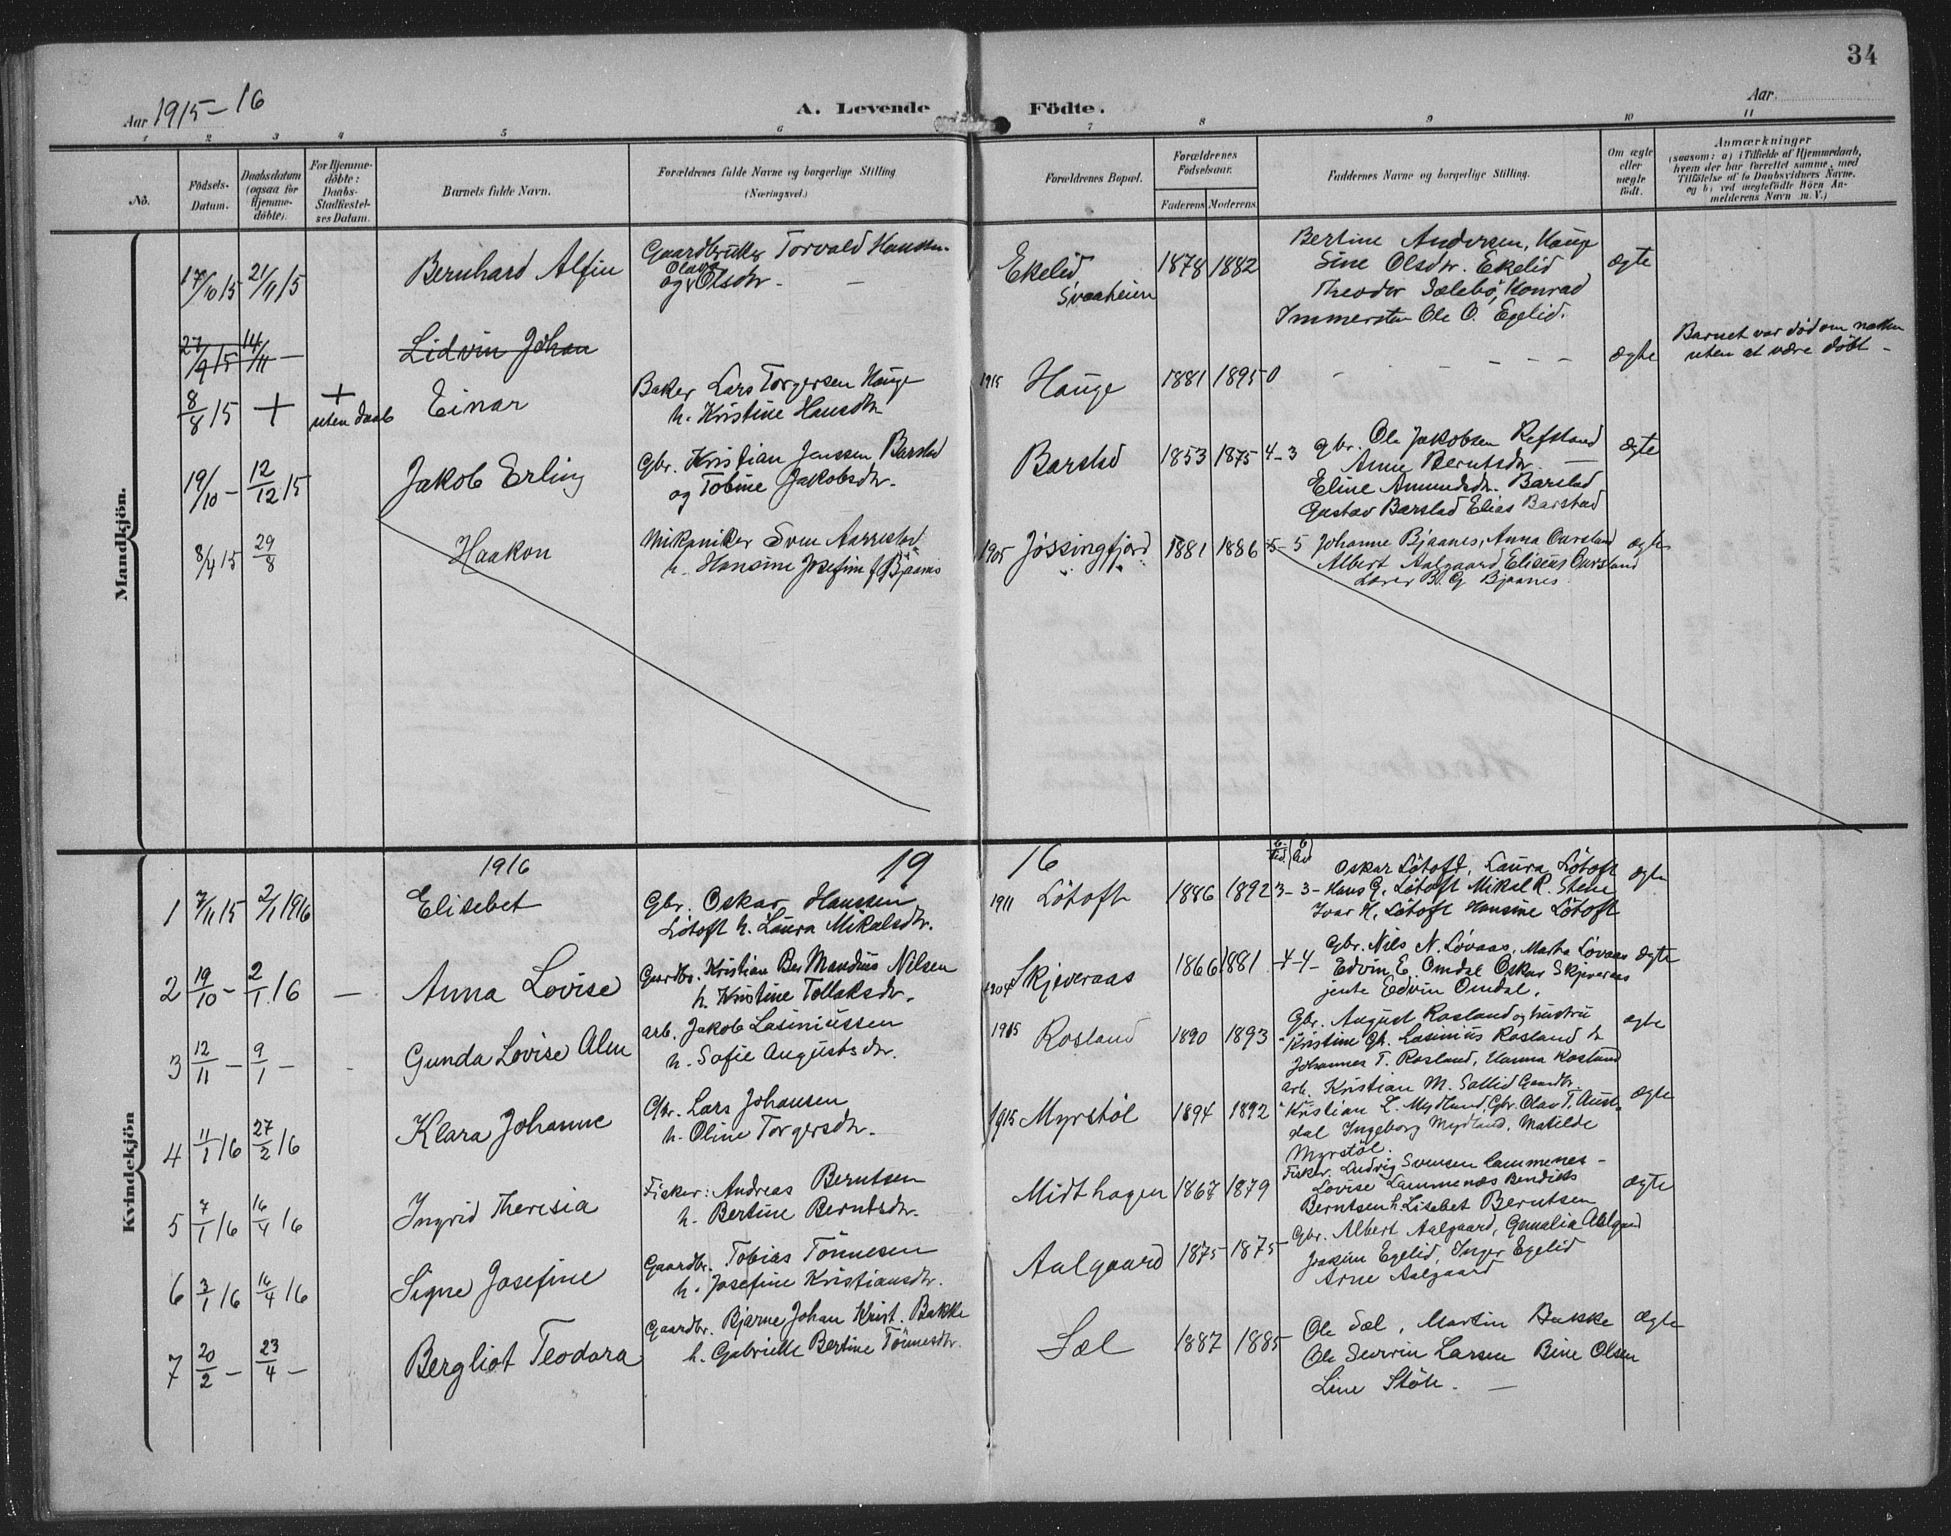 34
Aar 1915-16
A. Levende Födte.
Aar.
1 2 3 4 5 6 7 8 9 10 11
No.
Födsels-Datum.
Daabsdatum (ogsaa for Hjemme-døbte).
For Hjemme-döbte: Daabs-Stadfæstel-ses Datum.
Barnets fulde Navn.
Forældrenes fulde Navne og borgerlige Stilling (Næringsvei.)
Forældrenes Bopæl.
Forældrenes Födselsaar.
Faderens Moderens
Faddernes Navne og borgerlige Stilling.
Om ægte eller uægte födt.
Anmærkninger
(saasom: a) i Tilfælde af Hjemmedaab,
hvem der har forrettet samme, med
Tilføielse af to Daabsvidners Navne.
og b) ved uægtefödte Börn An-
melderens Navn m. V.)
Mandkjön.
17/10 15 21/11 15 Bernhard Alfin Gaardbruker Torvald Hansen
og Olava Olsdtr. - Ekelid Svaaheien 1878 1882
Bertine Andersen, Hauge
Sine Olsdtr. Ekelid
Theodor Sælebö, Konrad
Immersten Ole O. Egelid.
ægte
27/9 15 14/11 - Lidvin Johan ægte
Barnet var död om natten
uten at være döbt -
8/8 15 + + uten daab Einar Baker Lars Torgersen Hauge
h. Kristine Hansdtr. 1915 Hauge 1881 1895 0
19/10 - 12/12 15 Jakob Erling Gbr. Kristian Jenssen Barstad
og Tobine Jakobsdtr. Barstad 1853 1875 4-3
gbr. Ole Jakobsen Refsland
Anne Berntsdtr. -
Eline Amundsdtr. Barstad
Gustav Barstad Elias Barstad
ægte
8/4 15 29/8 Haakon Mikaniker Sven Aarrestad
h. Hansine Josefine f Bjaanes 1905 Jössingfjord 1881 1886 5-5
Johanne Bjaanes, Anna Oursland
Albert Aalgaard Eliseus Oursland
Lærer B. G Bjaanes
ægte
Kvindekjön
1916 19 16
1 7/11 15 2/1 1916 Elisebet Gbr. Oskar Hanssen
Lötoft h. Laura Mikalsdtr. 1911 Lötoft 1886 1892 3-3-
Oskar Lötoft, Laura Lötoft
Hans G. Lötoft Mikal R. Stene
Ivar H. Lötoft Hansine Lötoft
ægte
2 19/10 - 2/1 16 - Anna Lovise Gaardbr. Kristian Ber Mandius Nilsen
h. Kristine Tollaksdtr. 1904 Skjeveraas 1866 1881 4-4-
Gbr. Nils N. Lövaas, Martha Lövaas
Edvin E. Omdal Oskar Skjeveraas
jente Edvin Omdal.
ægte
3 12/11 - 9/1 - - Gunda Lovise Alm arb. Jakob Lasiniussen
h. Sofie Augustsdtr. 1915 Rosland 1890 1893
Gbr. August Rosland og hustru
Kristine Gh. Lasinius Rosland h
Johannes T. Rosland, Hanna Rosland
ægte
4 11/1 16 27/2 16 Klara Johanne Gbr. Lars Johansen
h. Oline Torgersdtr. 1915 Myrstöl 1894 1892
arb. Kristian M. Sollid Gaardbr.
Kristian L. Mydland, Gbr. Olav T. Aust-
dal Ingeborg Mydland, Matilde
Myrstöl.
ægte
5 7/1 16 16/4 16 Ingrid Theresia Fisker: Andreas Berntsen
h. Bertine Berntsdtr. Midthagen 1867 1879
Fisker. Ludvig Svensen Lammenes -
Lovise Lammenæs Bendiks
Berntsen h. Lisebet Berntsen
ægte
6 3/1 16 16/4 16 Signe Josefine Gaardbr. Tobias Tönnesen
h. Josefine Kristiansdtr. Aalgaard 1875 1875
Gbr. Albert Aalgaard, Gunalia Aalgaard
Joakim Egelid, Inger Egelid
Arne Aalgaard
7 20/2 - 23/4 - Bergliot Teodora Gaardbr. Bjarne Johan Krist. Bakke
h. Gabrielle Bertine Tönnesdtr. Sæl 1887 1885
Ole Sæl, Martin Bakke
Ole Severin Larsen Bine Olsen
Line Stöle. -
ægte